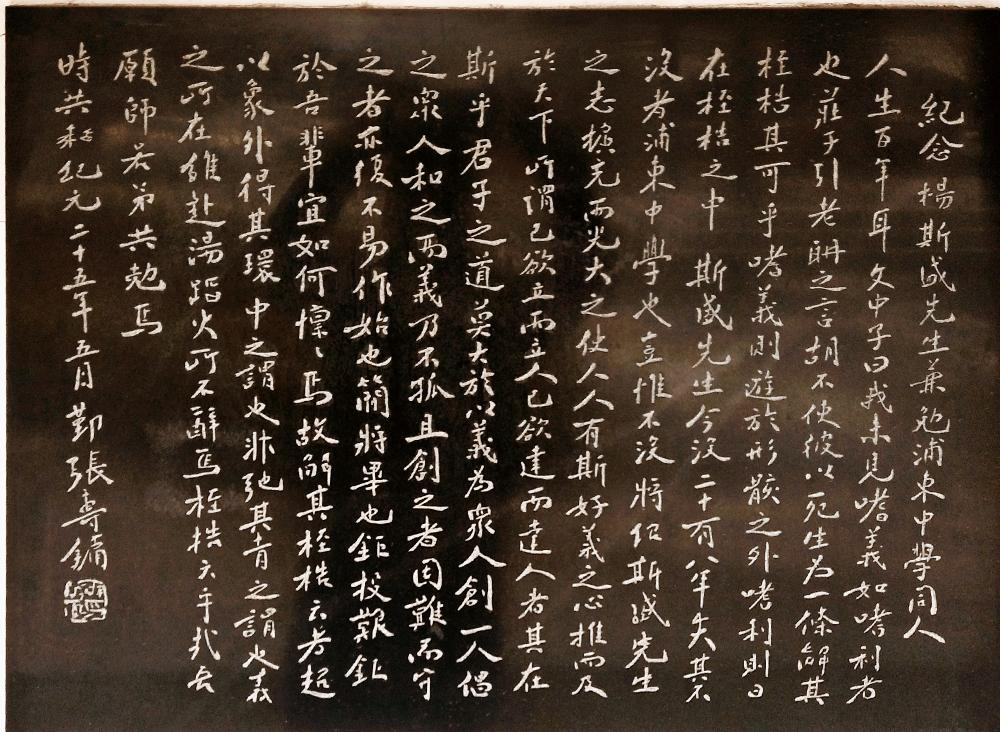 紀念楊斯盛先生兼勉浦東中學同人
人生百年耳文中子曰我未見嗜義如嗜利者
也莊子引老聃之言胡不使彼以死生為一條解其
桎梏其可乎嗜義則遊於形骸之外嗜利則日
在桎梏之中斯盛先生今沒二十有八年矣其不
沒者浦東中學也豈惟不沒將紹斯盛先生
之志擴充而光大之使人人有斯好義之心推而及
於天下所謂己欲立而立人己欲達而達人者其在
斯乎君子之道莫大於以義為眾人創一人倡
之眾人和之而義乃不孤且創之者固難而守
之者亦復不易作始也簡將畢也鉅投艱鉅
於吾輩宜如何懍懍焉故解其桎梏云者超
以象外得其環中之謂也非弛其責之謂也義
之所在雖赴湯蹈火所不辭焉桎梏云乎哉吾
願師若弟共勉焉
時共和紀元二十五年五月鄞張壽鏞